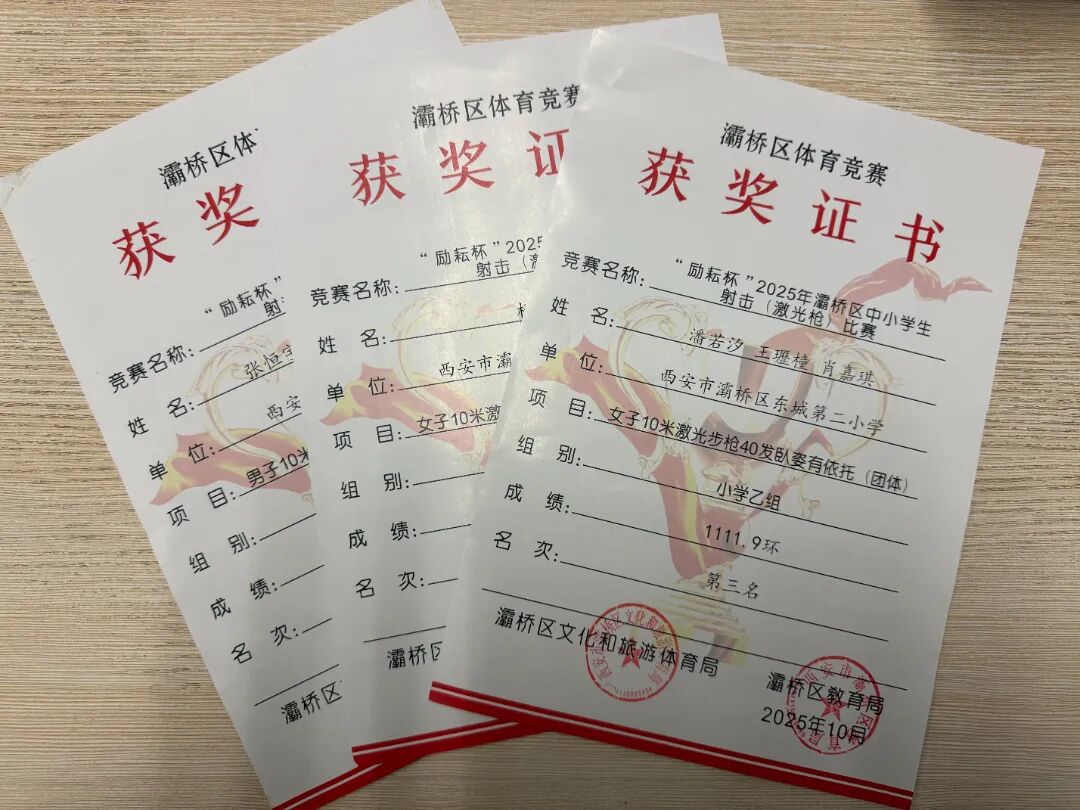 灞桥区体
获奖
"励耘杯"
射
竞赛名称:
姓 名: 张恒
单 位: 西安
项 目: 男子10米
组 别:
成 绩:
名 次:
灞桥区
灞桥区体育竞赛
获奖证
"励耘杯"2025
射击（激
竞赛名称:
姓 名:
单 位: 西安市灞
项 目: 女子10米激
组 别:
成 绩:
名 次:
灞桥区
灞桥区体育竞赛
获奖证书
"励耘杯"2025年灞桥区中小学生
竞赛名称: 射击（激光枪）比赛
姓 名: 潘若汐 王璎橦 肖嘉琪
单 位: 西安市灞桥区东城第二小学
项 目: 女子10米激光步枪40发卧姿有依托（团体）
组 别: 小学乙组
成 绩: 1111.9环
名 次: 第三名
灞桥区文化和旅游体育局
灞桥区教育局
2025年10月